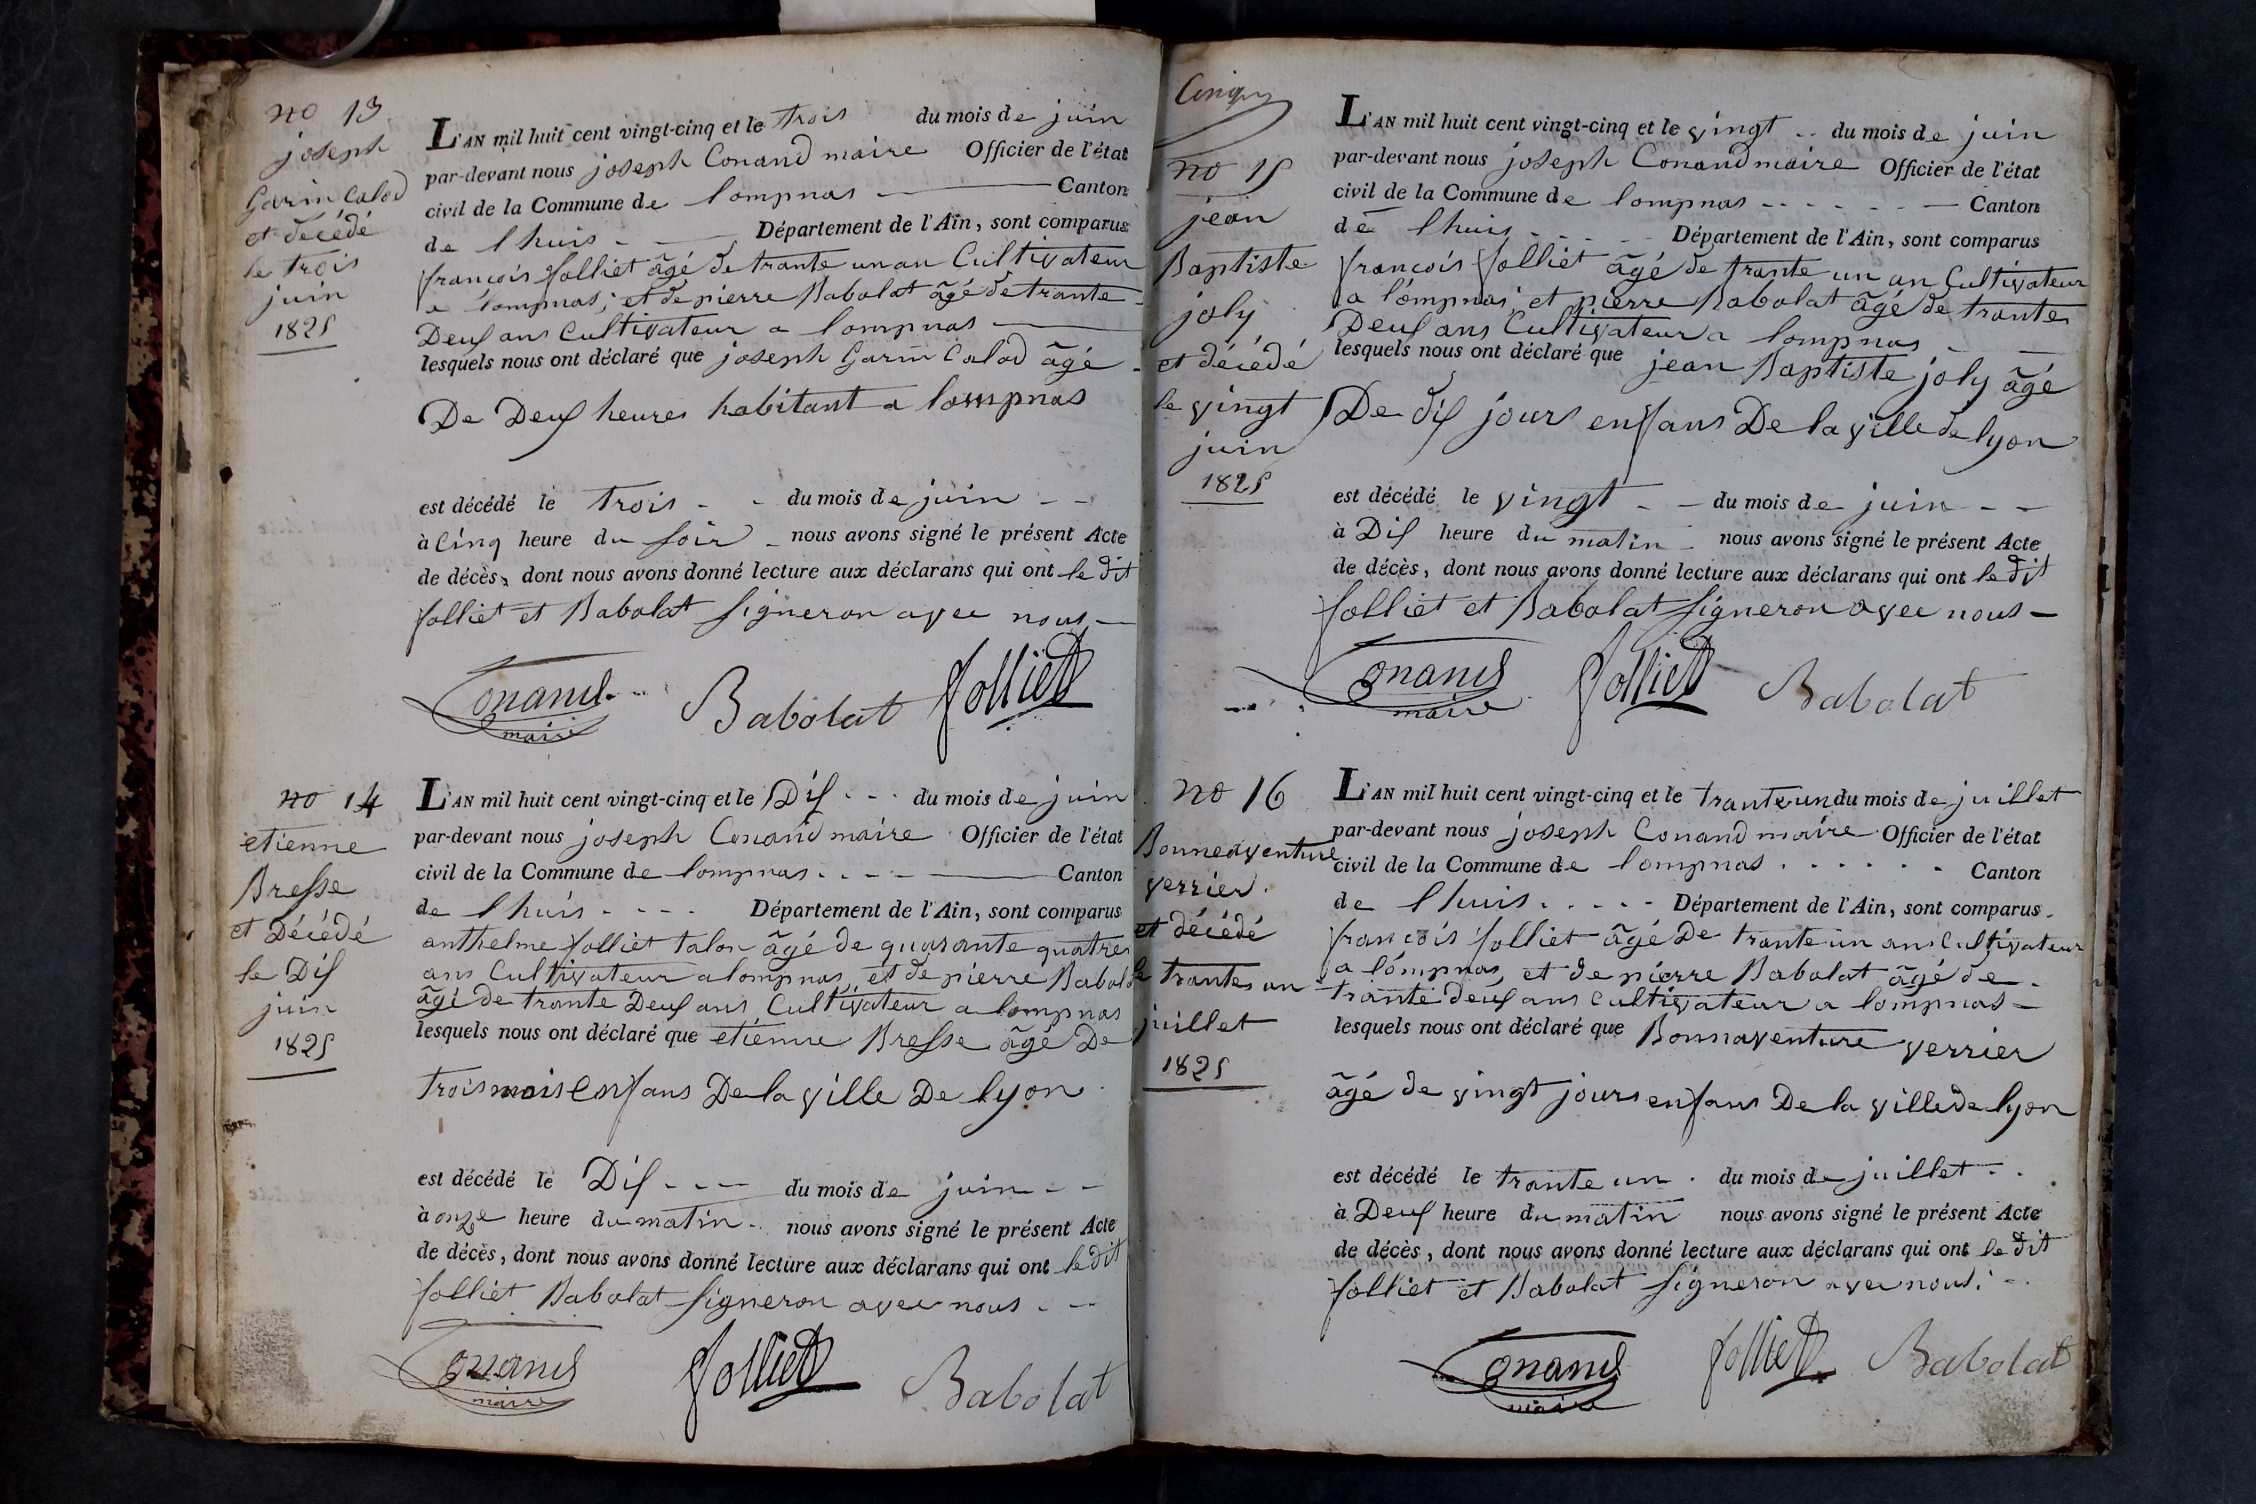 no 13
joseph
Garin Calod
et décédé
le trois
juin
1825
L'AN mil huit cent vingt-cinq et le trois du mois de juin
par-devant nous joseph Conand maire Officier de l'état
civil de la Commune de lompnas Canton
de lhuis Département de l'Ain, sont comparus
françois folliet âgé de trante un an Cultivateur
a lompnas, et de pierre Babolat âgé de trante
Deux ans Cultivateur a lompnas
lesquels nous ont déclaré que joseph Garin Calod âgé
De Deux heures habitant a lompnas
est décédé le trois du mois de juin
à Cinq heure du soir nous avons signé le présent Acte
de décès, dont nous avons donné lecture aux déclarans qui ont le dit
folliet et Babolat signeron avec nous
Conand Babolat folliet
maire
no 14
etienne
Bresse
et Décédé
le Dix
juin
1825
L'AN mil huit cent vingt-cinq et le Dix du mois de juin
par-devant nous joseph Conand maire Officier de l'état
civil de la Commune de lompnas Canton
de lhuis Département de l'Ain, sont comparus
anthelme folliet talon âgé de quarante quatres
ans Cultivateur a lompnas, et de pierre Babolat
âgé de trante Deux ans Cultivateur a lompnas
lesquels nous ont déclaré que etienne Bresse âgé De
trois mois enfans De la ville De lyon
est décédé le Dix du mois de juin
à onze heure du matin nous avons signé le présent Acte
de décès, dont nous avons donné lecture aux déclarans qui ont le dit
folliet Babolat signeron avec nous
Conand folliet Babolat
maire
no 15
jean
Baptiste
joly
et décédé
le vingt
juin
1825
L'AN mil huit cent vingt-cinq et le vingt du mois de juin
par-devant nous joseph Conand maire Officier de l'état
civil de la Commune de lompnas Canton
de lhuis Département de l'Ain, sont comparus
françois folliet âgé de trante un an Cultivateur
a lompnas, et pierre Babolat âgé de trantes
Deux ans Cultivateur a lompnas
lesquels nous ont déclaré que jean Baptiste joly âgé
De dix jours enfans De la ville de lyon
est décédé le vingt du mois de juin
à Dix heure du matin nous avons signé le présent Acte
de décès, dont nous avons donné lecture aux déclarans qui ont le dit
folliet et Babolat signeron avec nous
Conand folliet Babolat
maire
no 16
Bonneaventure
verrier
et décédé
le trantes un
juillet
1825
L'AN mil huit cent vingt-cinq et le trante un du mois de juillet
par-devant nous joseph Conand maire Officier de l'état
civil de la Commune de lompnas Canton
de lhuis Département de l'Ain, sont comparus
françois folliet âgé De trante un ans Cultivateur
a lompnas, et de pierre Babolat âgé de
trante deux ans Cultivateur a lompnas
lesquels nous ont déclaré que Bonnaventure verrier
âgé de vingt jours enfans De la ville de lyon
est décédé le trante un du mois de juillet
à Deux heure du matin nous avons signé le présent Acte
de décès, dont nous avons donné lecture aux déclarans qui ont le dit
folliet et Babolat signeron avec nous
Conand folliet Babolat
maire